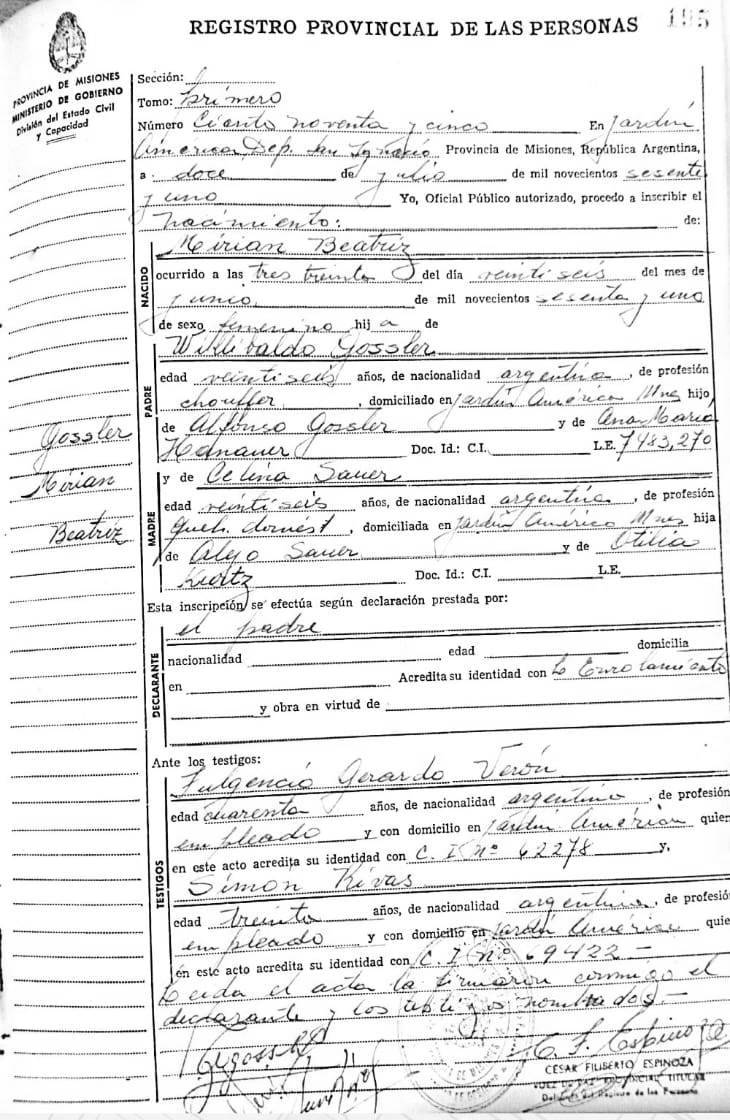 REGISTRO PROVINCIAL DE LAS PERSONAS
195
PROVINCIA DE MISIONES
MINISTERIO DE GOBIERNO
División del Estado Civil
y Capacidad
Sección:
Tomo: primero
Número Ciento noventa y cinco En Jardín
America Dep. San Ignacio Provincia de Misiones, República Argentina,
a doce de julio de mil novecientos sesenta
y uno Yo, Oficial Público autorizado, procedo a inscribir el
nacimiento: de:
NACIDO
Mirian Beatriz
ocurrido a las tres treinta del día veintiseis del mes de
junio de mil novecientos sesenta y uno
de sexo femenino hij a de
PADRE
Willibaldo Gossler
edad veintiseis años, de nacionalidad argentina, de profesión
chouffer, domiciliado en Jardín América Mnes hijo
de Alfonso Gossler y de Ana María
Hanauer Doc. Id.: C.I. L.E. 7483,270
Gossler
Mirian
Beatriz
MADRE
y de Celina Sauer
edad veintiseis años, de nacionalidad argentina, de profesión
queh. domést, domiciliada en Jardín América Mnes hija
de Algo Sauer y de Otilia
Kurtz Doc. Id.: C.I. L.E.
Esta inscripción se efectúa según declaración prestada por:
DECLARANTE
el padre
nacionalidad edad domicilia
en Acredita su identidad con L Enrolamiento
y obra en virtud de
Ante los testigos:
TESTIGOS
Fulgencio Gerardo Verón
edad cuarenta años, de nacionalidad argentino, de profesión
empleado y con domicilio en Jardín América quien
en este acto acredita su identidad con C. I. Nº 62278 y,
Simón Rivas
edad treinta años, de nacionalidad argentina, de profesió
empleado y con domicilio en Jardín América quie
en este acto acredita su identidad con C. I. Nº 69422 —
Leida el acta la firmaron conmigo el
declarante y los testigos nombrados.—
C. F. Espinoza
CESAR FILIBERTO ESPINOZA
JUEZ DE PAZ PROVINCIAL TITULAR
Del Registro de las Personas